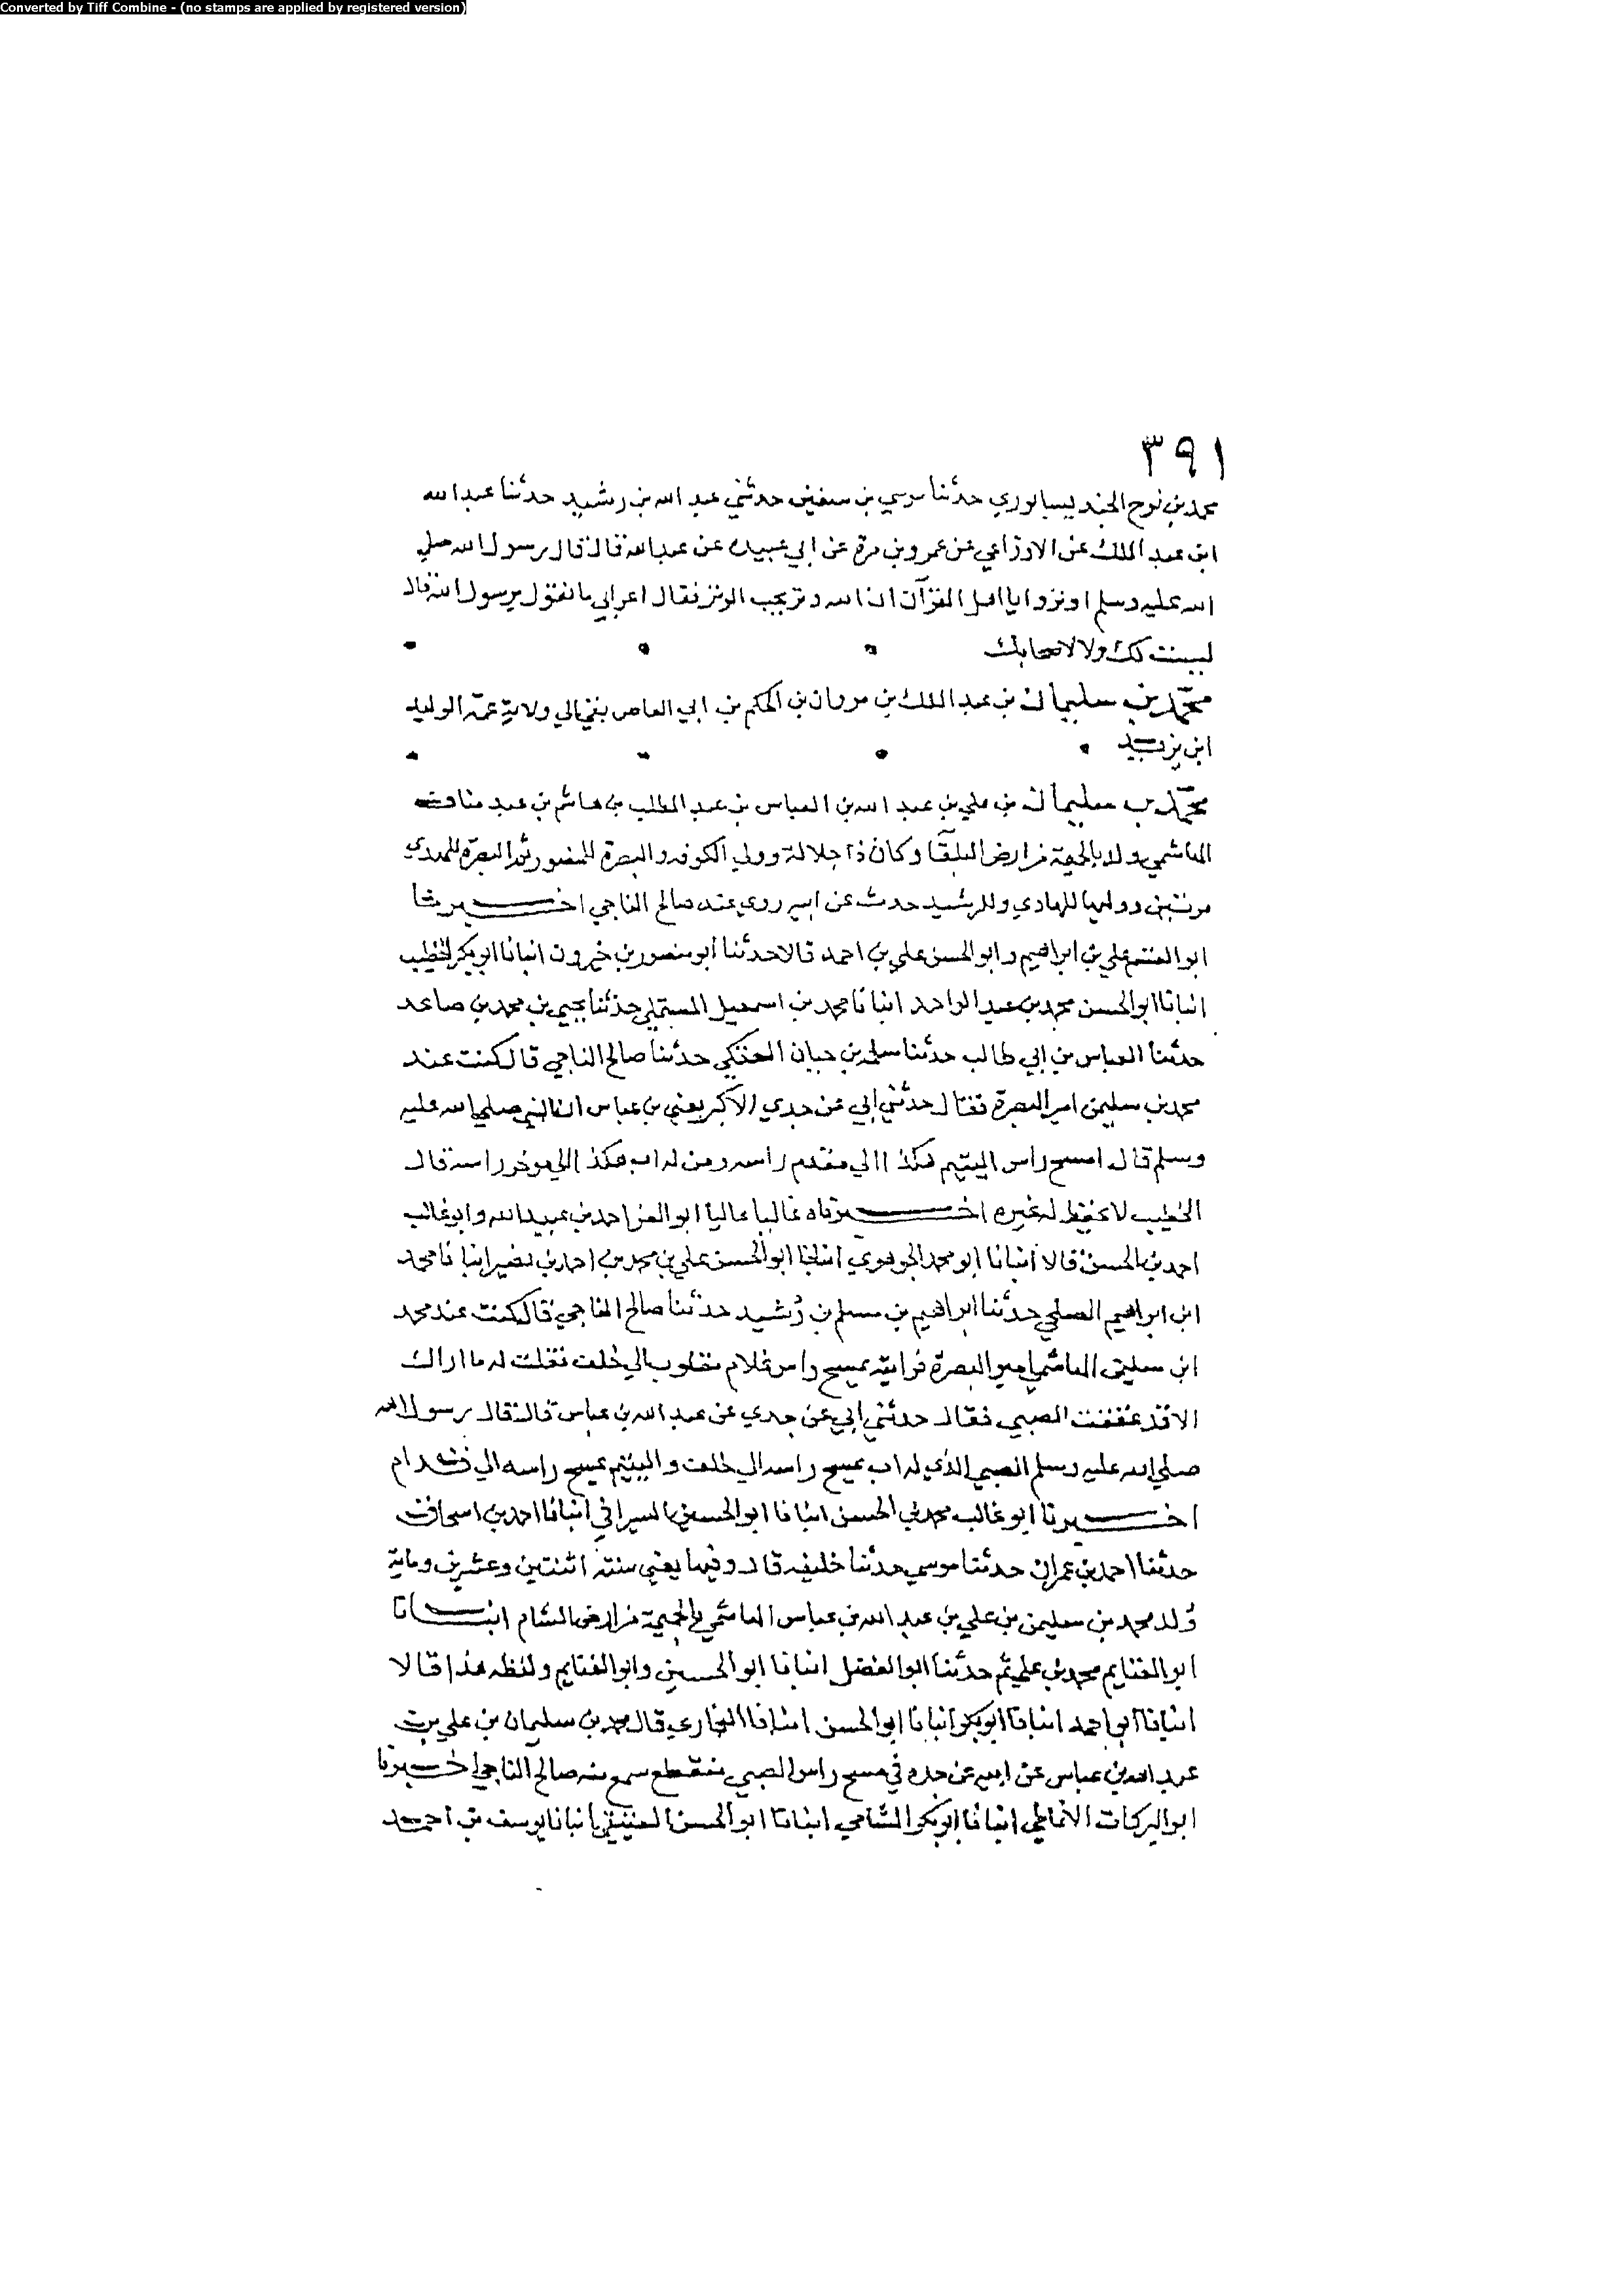 Converted by Tiff Combine - (no stamps are applied by registered version)
٣٩١
محمد بن نوح الجنديسابوري حدثنا موسي بن سفين حدثني عبد الله بن رشيد حدثنا عبد الله
ابن عبد الملك عن الاوزاعي عن عمرو بن مرة عن ابي عبيده عن عبد الله قال قال رسول الله صلي
الله عليه وسلم اوتروا يا اهل القرآن ان الله وتر يحب الوتر فقال اعرابي ما تقول يرسول الله قال
ليست لك ولا لاصحابك
محمد بن سليمان بن عبد الملك بن مروان بن الحكم بن ابي العاص بقي الي ولاية عمه الوليد
ابن يزيد
محمد بن سليمان بن علي بن عبد الله بن العباس بن عبد المطلب بن هاشم بن عبد مناف
الهاشمي ولد بالحميمة من ارض البلقا وكان ذا جلالة وولي الكوفه والبصرة للمنصور ثم البصرة للمهدي
مرتين ووليها للهادي وللرشيد حدث عن ابيه روي عنه صالح الناجي اخبرنا
ابو القسم علي بن ابراهيم وابو الحسن علي بن احمد قالا حدثنا ابو منصور بن خيرون انبانا ابو بكر الخطيب
انبانا ابو الحسن محمد بن عبد الواحد انبانا محمد بن اسمعيل المستملي حدثنا يحيي بن محمد بن صاعد
حدثنا العباس بن ابي طالب حدثنا سلمة بن حيان العتكي حدثنا صالح الناجي قال كنت عند
محمد بن سليمن امير البصرة فقال حدثني ابي عن جدي الاكبر يعني بن عباس ان النبي صلي الله عليه
وسلم قال امسح راس اليتيم هكذا الي مقدم راسه ومن له اب هكذا الي موخر راسه قال
الخطيب لا يحفظ له غيره اخبرناه غالبا عاليا ابو العز احمد بن عبيد الله وابو غالب
احمد بن الحسن قالا انبانا ابو محمد الجوهري انبانا ابو الحسن علي بن محمد بن احمد بن نصير انبانا محمد
ابن ابراهيم الصلحي حدثنا ابراهيم بن مسلم بن رُشيد حدثنا صالح الناجي قال كنت عند محمد
ابن سليمن الهاشمي امير البصرة فرايته يمسح راس غلام مقلوب الي خلف فقلت له ما اراك
الا قد عققت الصبي فقال حدثني ابي عن جدي عن عبد الله بن عباس قال قال رسول الله
صلي الله عليه وسلم الصبي الذي له اب يمسح راسه الي خلف واليتيم يمسح راسه الي قدام
اخبرنا ابو غالب محمد بن الحسن انبانا ابو الحسين السيرافي انبانا احمد بن اسحاق
حدثنا احمد بن عمران حدثنا موسي حدثنا خليفه قال وفيها يعني سنة اثنتين وعشرين وماية
وُلد محمد بن سليمن بن علي بن عبد الله بن عباس الهاشمي بالحميمة من ارض الشام انبانا
ابو الغنايم محمد بن علي ثم حدثنا ابو الفضل انبانا ابو الحسين وابو الغنايم ولفظه هذا قالا
انبانا ابو احمد انبانا ابو بكر انبانا ابو الحسن انبانا البخاري قال محمد بن سليمان بن علي بن
عبد الله بن عباس عن ابيه عن جده في مسح راس الصبي منقطع سمع منه صالح الناجي اخبرنا
ابو البركات الانماطي انبانا ابو بكر الشامي انبانا ابو الحسن العتيقي انبانا يوسف بن احمد